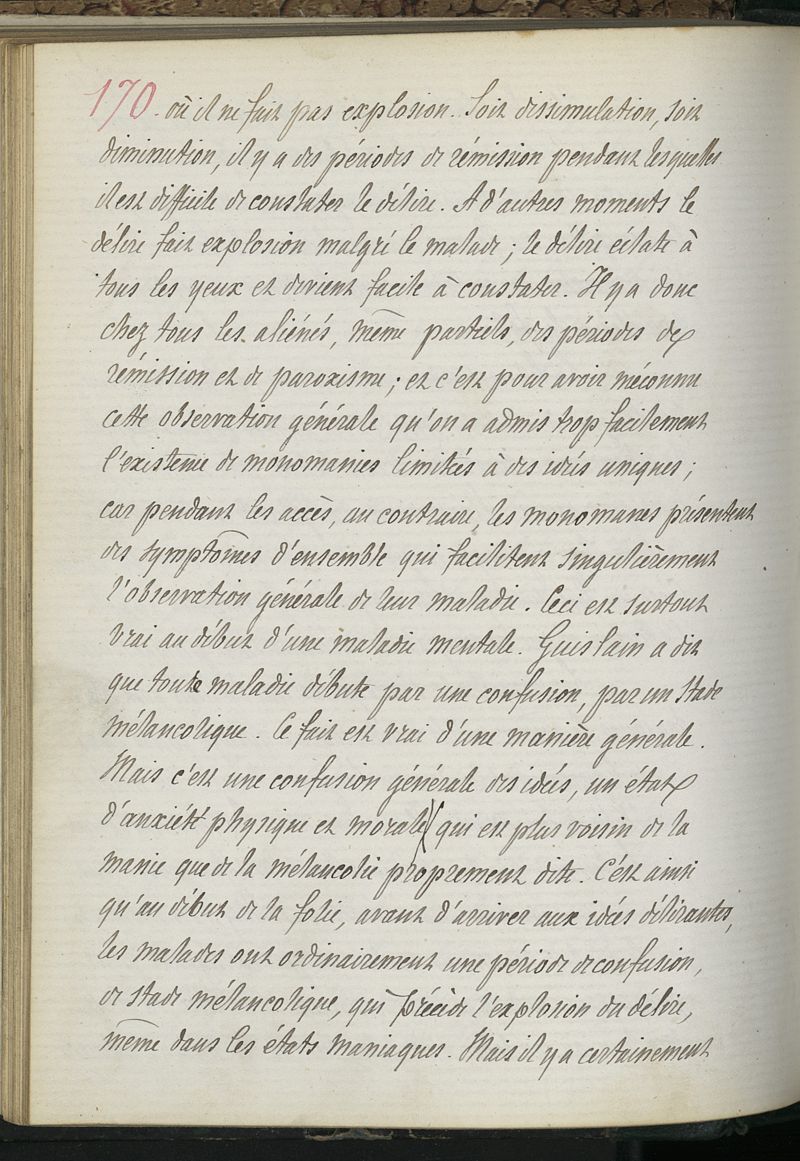 170. où il ne fait pas explosion. Soit dissimulation, soit
diminution, il y a des périodes de rémission pendant lesquelles
il est difficile de constater le délire. A d'autres moments le
délire fait explosion malgré le malade ; le délire éclate à
tous les yeux et devient facile à constater. Il y a donc
chez tous les aliénés, même partiels, des périodes de
rémission et de paroxisme ; et c'est pour avoir méconnu
cette observation générale qu'on a admis trop facilement
l'existence de monomanies limitées à des idées uniques ;
car pendant les accès, au contraire, les monomanes présentent
des symptômes d'ensemble qui facilitent singulièrement
l'observation générale de leur maladie. Ceci est surtout
vrai au début d'une maladie mentale. Guislain a dit
que toute maladie débute par une confusion, par un stade
mélancolique. Ce fait est vrai d'une manière générale.
Mais c'est une confusion générale des idées, un état
d'anxiété physique et morale) (qui est plus voisin de la
manie que de la mélancolie proprement dite. C'est ainsi
qu'au début de la folie, avant d'arriver aux idées délirantes,
les malades ont ordinairement une période de confusion,
de stade mélancolique, qui précède l'explosion du délire,
même dans les états maniaques. Mais il y a certainement